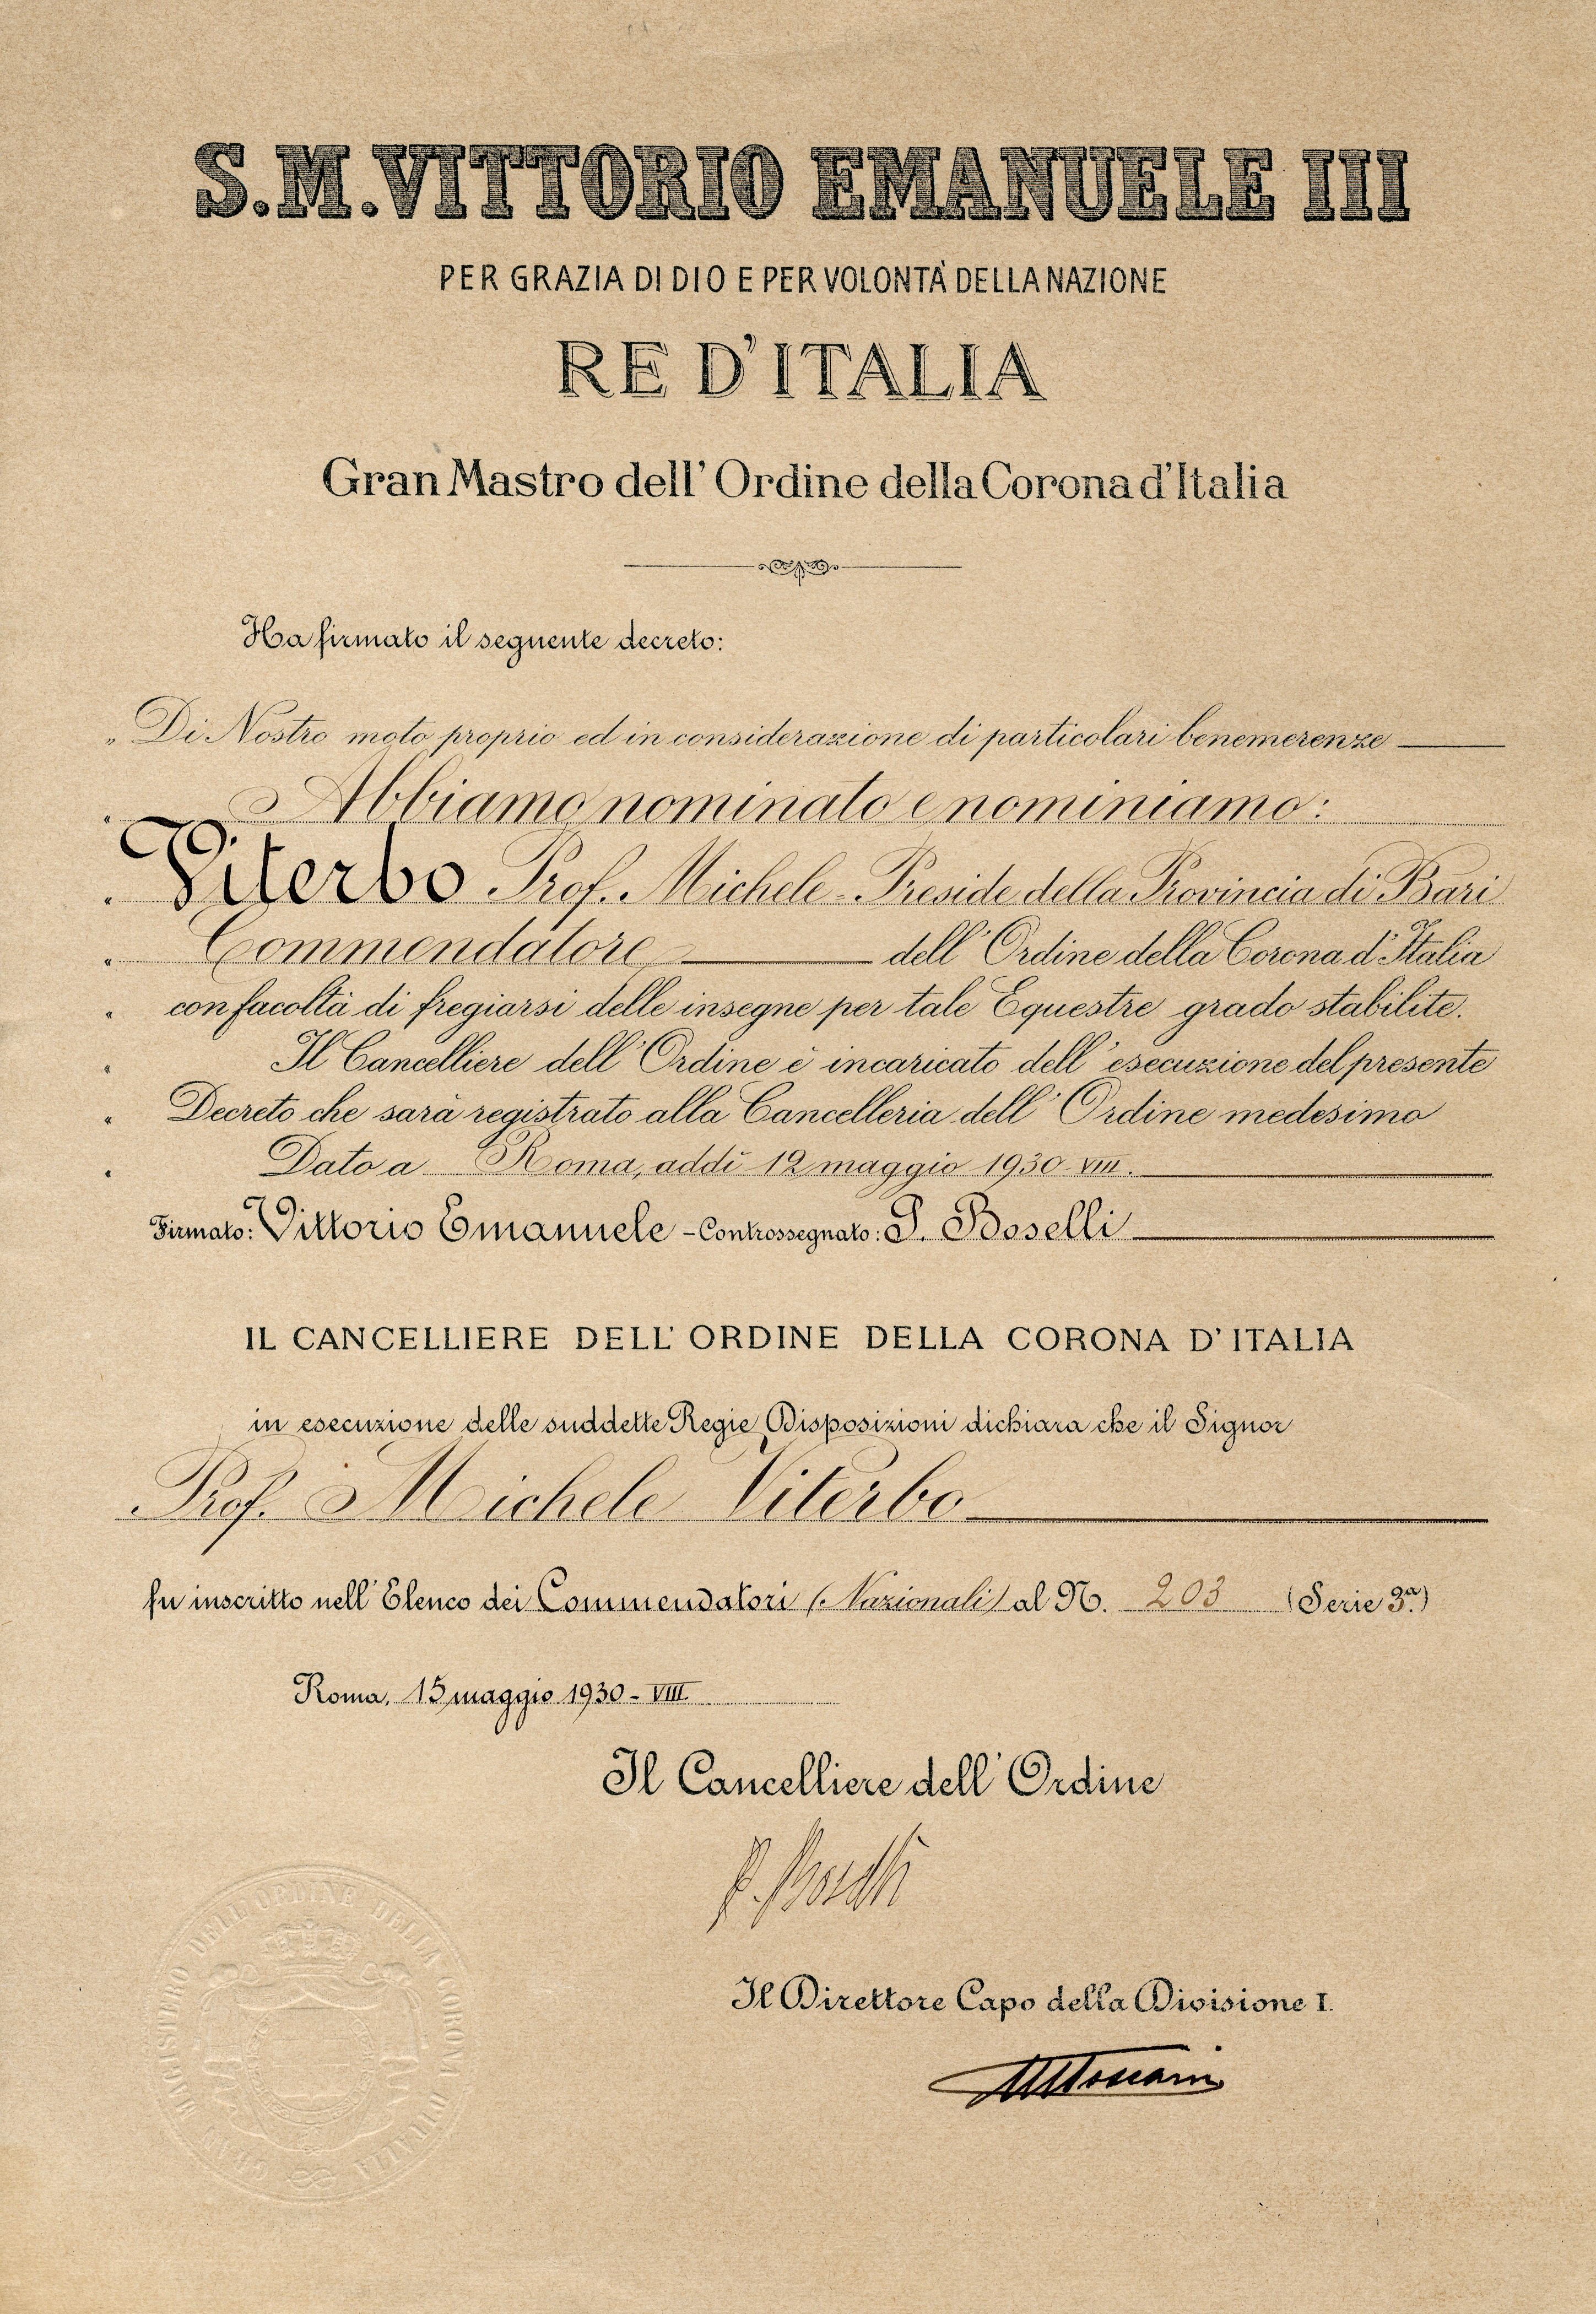 S.M.VITTORIO EMANUELE III
PER GRAZIA DI DIO E PER VOLONTÀ DELLA NAZIONE
RE D'ITALIA
Gran Mastro dell' Ordine della Corona d'Italia
Ha firmato il seguente decreto:
„ Di Nostro moto proprio ed in considerazione di particolari benemerenze
„ Abbiamo nominato e nominiamo:
„ Viterbo Prof. Michele - Preside della Provincia di Bari
„ Commendatore dell' Ordine della Corona d'Italia
„ con facoltà di fregiarsi delle insegne per tale Equestre grado stabilite.
„ Il Cancelliere dell' Ordine è incaricato dell' esecuzione del presente
„ Decreto che sarà registrato alla Cancelleria dell' Ordine medesimo
„ Dato a Roma, addì 12 maggio 1930-VIII.
Firmato: Vittorio Emanuele - Controssegnato: P. Boselli
IL CANCELLIERE DELL' ORDINE DELLA CORONA D'ITALIA
in esecuzione delle suddette Regie Disposizioni dichiara che il Signor
Prof. Michele Viterbo
fu inscritto nell' Elenco dei Commendatori (Nazionali) al N. 203 (Serie 3ª.)
Roma, 15 maggio 1930 - VIII
Il Cancelliere dell' Ordine
P. Boselli
Il Direttore Capo della Divisione I.
GRAN MAGISTERO DELL'ORDINE DELLA CORONA D'ITALIA